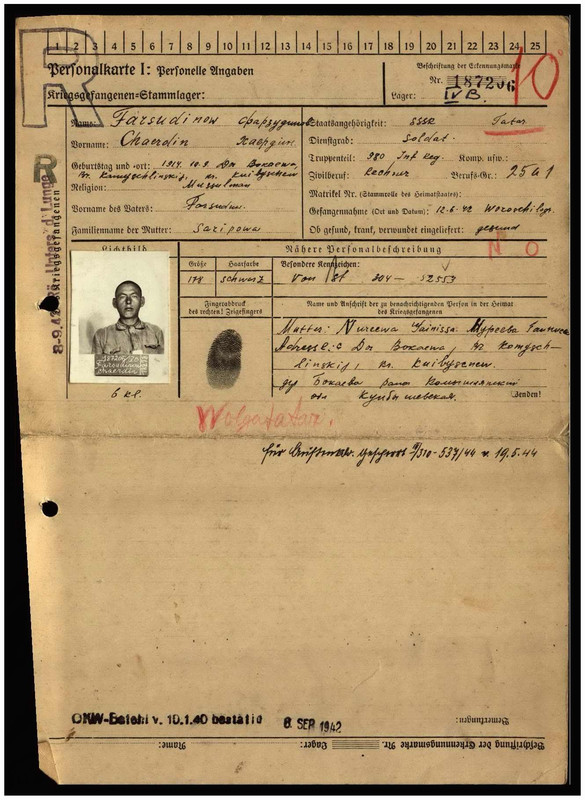 1 2 3 4 5 6 7 8 9 10 11 12 13 14 15 16 17 18 19 20 21 22 23 24 25
R
Personalkarte I: Personelle Angaben
Kriegsgefangenen-Stammlager:
Beschriftung der Erkennungsmarke
Nr. 187206
Lager: IV B.
10
Name: Farsudinow Фарзудинов
Vorname: Chaerdin Хаердин
Geburtstag und -ort: 1914. 10.9 Dor Bokaewa,
Kr. Kuibyschew
Religion: Musselman
Vorname des Vaters: Farsudin.
Familienname der Mutter: Saripowa
Staatsangehörigkeit: SSSR Tatar.
Dienstgrad: Soldat.
Truppenteil: 980 Inf Reg. Komp. usw.:
Zivilberuf: Rechner Berufs-Gr.: 25a1
Matrikel Nr. (Stammrolle des Heimatstaates):
Gefangennahme (Ort und Datum): 12.6.42 Woroschilogr.
Ob gesund, krank, verwundet eingeliefert: gesund
R
Kriegsgefangenen
8-9.42
Lichtbild
Nähere Personalbeschreibung
N O
Größe
Haarfarbe
Besondere Kennzeichen:
178
schwarz
Von St 304 – 52553
Fingerabdruck
des rechten! Zeigefingers
Name und Anschrift der zu benachrichtigenden Person in der Heimat
des Kriegsgefangenen
Mutter: Nureewa
Adresse: Dor Bokaewa, Kr.
Kr. Kuibyschew.
Бокаева
Куйбышевская.
Wenden!
187206
Farsudinow
Chaerdin
6 kl.
Wolgatatar.
9/310-537/44 v. 19.5.44
OKW-Befehl v. 10.1.40 bestätigt 8. SEP. 1942
Bemerkungen:
Beschriftung der Erkennungsmarke Nr.
Lager:
Name: